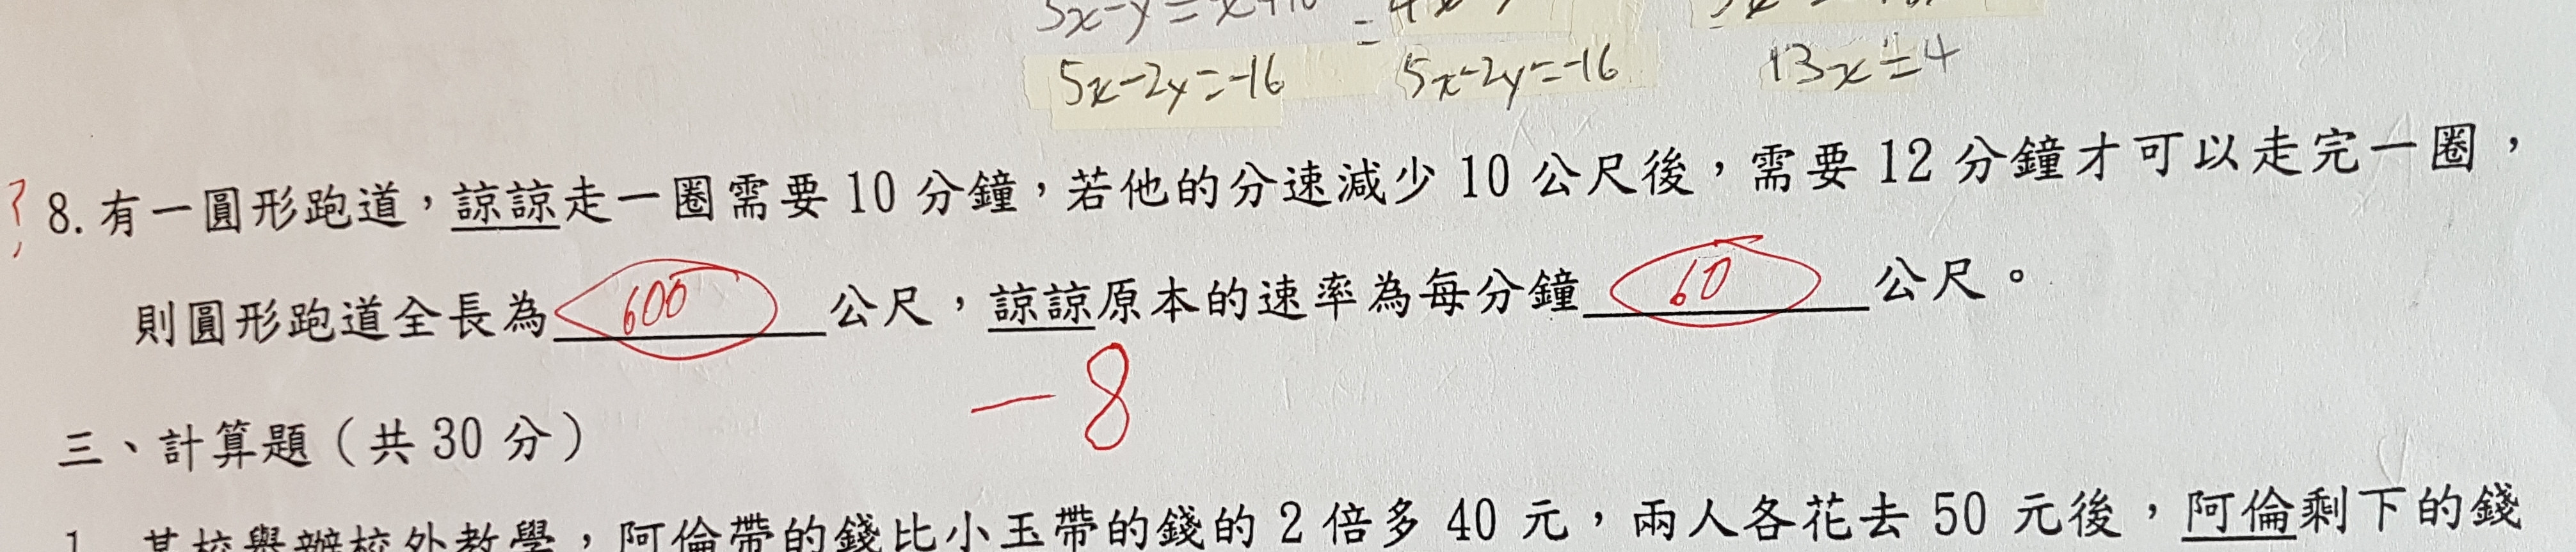 5x-2y=-16 5x-2y=-16 13x=4
? 8.有一圓形跑道，諒諒走一圈需要10分鐘，若他的分速減少10公尺後，需要12分鐘才可以走完一圈，
則圓形跑道全長為 600 公尺，諒諒原本的速率為每分鐘 60 公尺。
-8
三、計算題（共30分）
1. 某校舉辦校外教學，阿倫帶的錢比小玉帶的錢的2倍多40元，兩人各花去50元後，阿倫剩下的錢